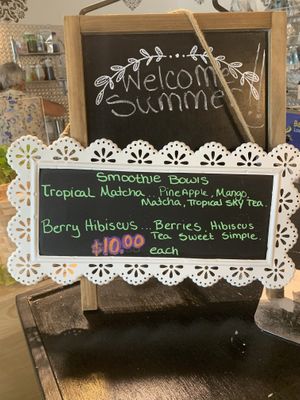 Welcome
Summer!
Smoothie Bowls
Tropical Matcha... PineApple, Mango,
Matcha, Tropical Sky Tea.
Berry Hibiscus... Berries, Hibiscus
Tea Sweet Simple.
$10.00
each